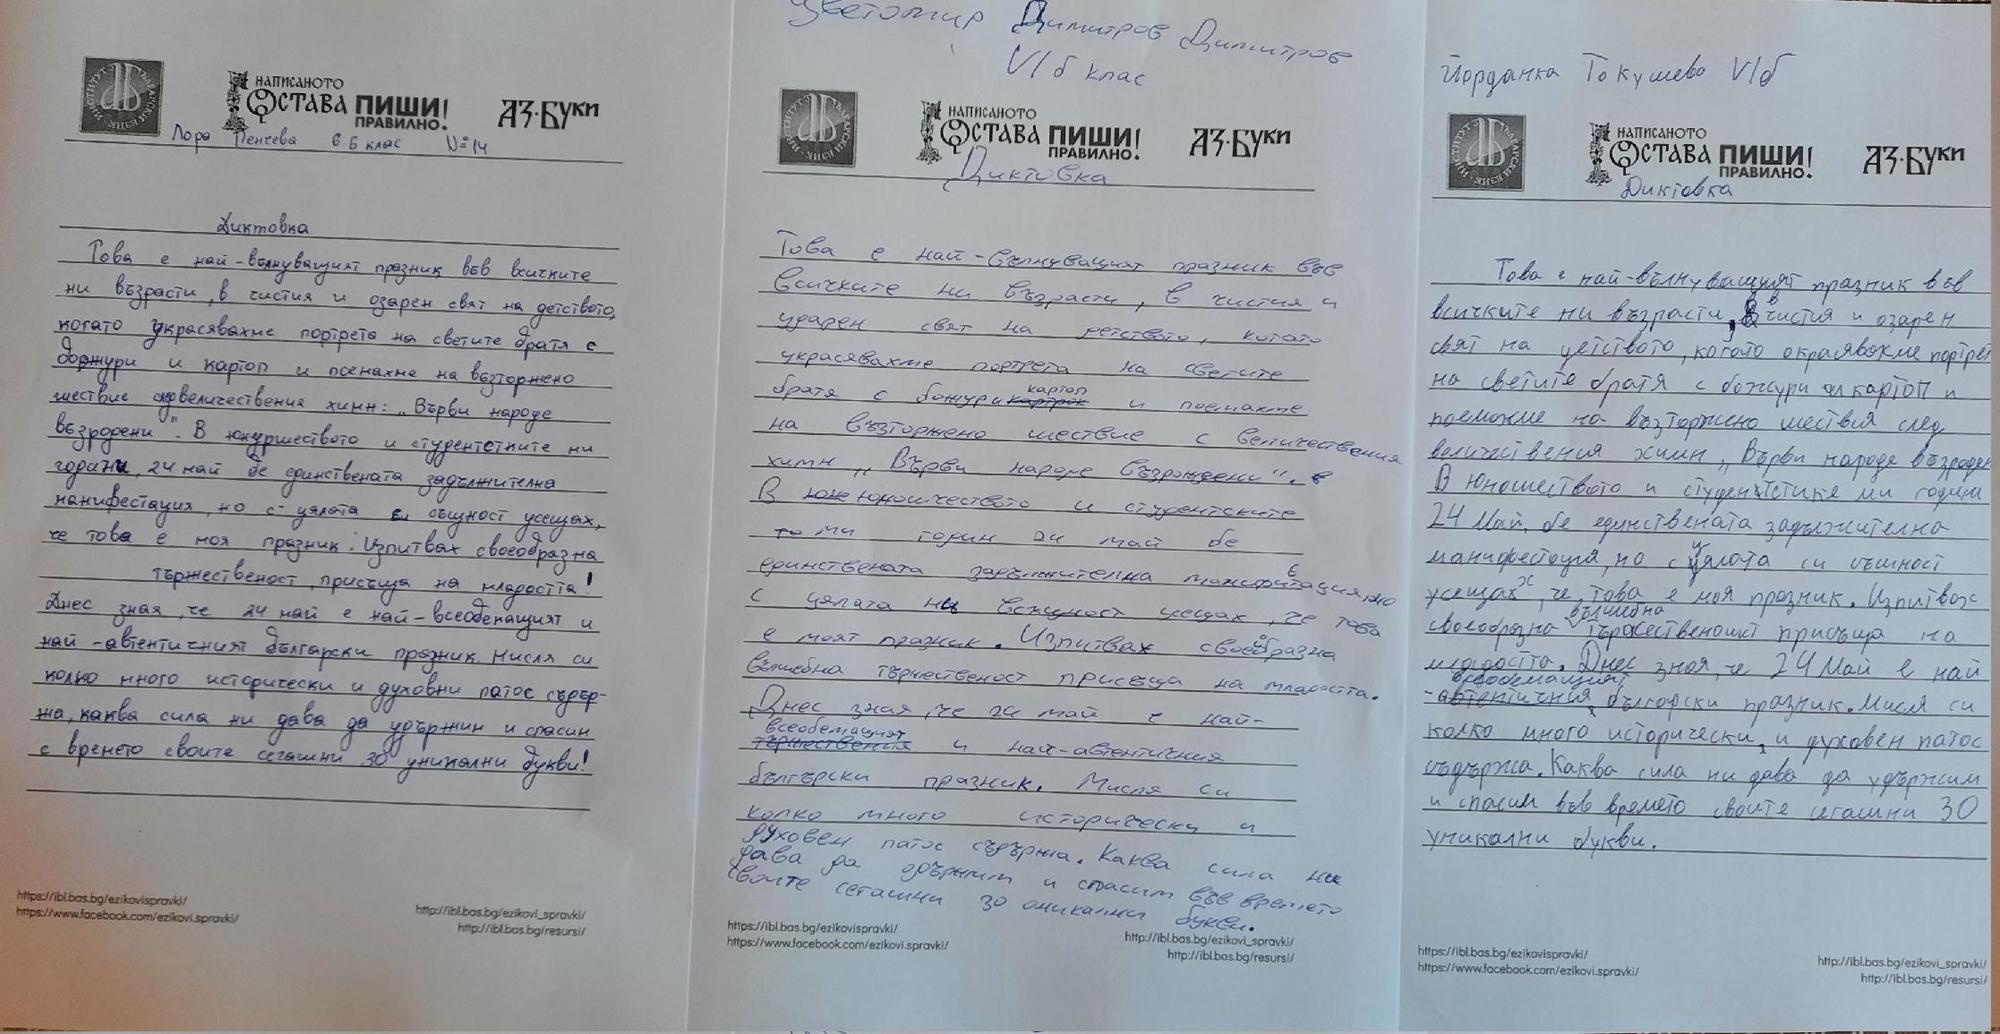 НАПИСАНОТО
ОСТАВА ПИШИ!
ПРАВИЛНО!
АЗ·БУКИ
Лора Пенчева 6 б клас №14
Диктовка
Това е най-вълнуващият празник във всичките
ни възрасти, в чистия и озарен свят на детството,
когато украсявахме портрета на светите братя с
божури и картоп и поемахме на възторжено
шествие с величествения химн: „Върви народе
възродени". В и студентстките ни
години, 24 май бе единствената задължителна
манифестация, но с цялата си същност усещах,
че това е моя празник. Изпитвах своеобразна
тържественост, присъща на младостта!
Днес зная, че 24 май е най-всеобемащият и
най-автентичният български празник. Мисля си
колко много исторически и духовни патос съдър-
жа, каква сила ни дава да удържим и спасим
с времето своите сегашни 30 уникални букви!
https://ibl.bas.bg/ezikovispravki/
https://www.facebook.com/ezikovi.spravki/
http://ibl.bas.bg/ezikovi_spravki/
http://ibl.bas.bg/resursi/
Цветомир Димитров Димитров
VI б клас
НАПИСАНОТО
ОСТАВА ПИШИ!
ПРАВИЛНО!
АЗ·БУКИ
Диктовка
Това е най-вълнуващият празник във
всичките ни възрасти, в чистия и
ударен свят на детството, когато
украсявахме портрета на светите
братя с божури картоп и поемахме
на възторжено шествие с величествения
химн „Върви народе възраждени".
В юношичеството и студентските
ми годин 24 май бе
единствената задължителна манифетация, но
с цялата ни всъщност усещах, че това
е моят празник. Изпитвах своеобразна
вълшебна тържественост присъща на младостта.
Днес зная, че 24 май е най-
всеобемащият
тържествения и най-автентичния
български празник. Мисля си
колко много исторически и
духовен патос съдържа. Каква сила ни
дава да одържим и спасим във времето
своите сегашни 30 оникални букви.
https://ibl.bas.bg/ezikovispravki/
https://www.facebook.com/ezikovi.spravki/
http://ibl.bas.bg/ezikovi_spravki/
http://ibl.bas.bg/resursi/
Йорданка Токушева VI б
НАПИСАНОТО
ОСТАВА ПИШИ!
ПРАВИЛНО!
АЗ·БУКИ
Диктовка
Това е най-вълнуващият празник във
всичките ни възрасти, в чистия и озарен
свят на детството, когато окрасявахме портрет
на светите братя с божури и картоп и
поемахме на възторжено шествия след
величествения химн „Върви народе възроден
В юношеството и студентстике ми години
24 Май, бе единствената задължителна
манифестоция, но с цялата си същност
усещах, че това е моя празник. Изпитвах
вълшебна
своеобразна тържественошкт присъща на
младостта. Днес зная, че 24 Май е най
всеобемащият
-автентичния български празник. Мисля си
колко много исторически, и духовен патос
съдържа. Каква сила ни дава да удържим
и спасим във времето своите сегашни 30
уникални букви.
https://ibl.bas.bg/ezikovispravki/
https://www.facebook.com/ezikovi.spravki/
http://ibl.bas.bg/ezikovi_spravki/
http://ibl.bas.bg/resursi/